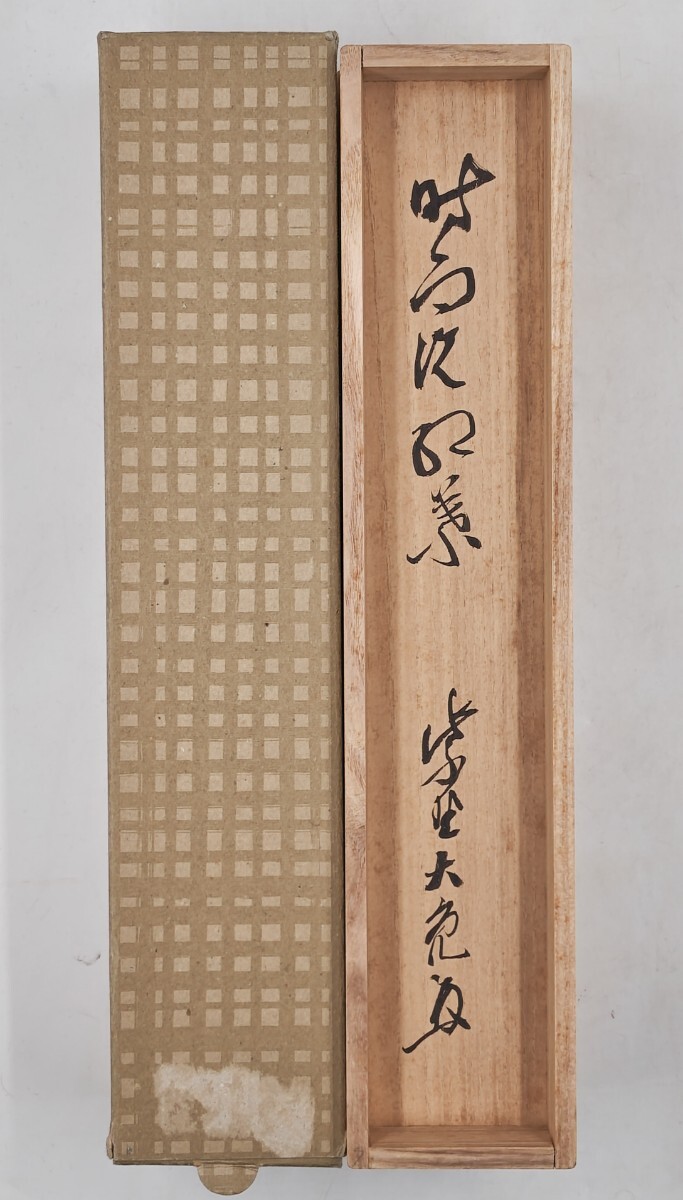 時雨洗紅葉 紫野大亀叟